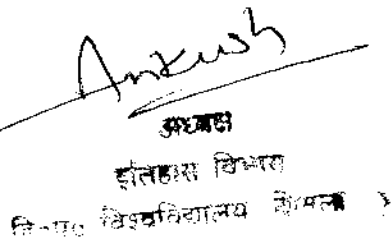 Ankush
अध्यक्ष
इतिहास विभाग
हि०प्र० विश्वविद्यालय शिमला 5